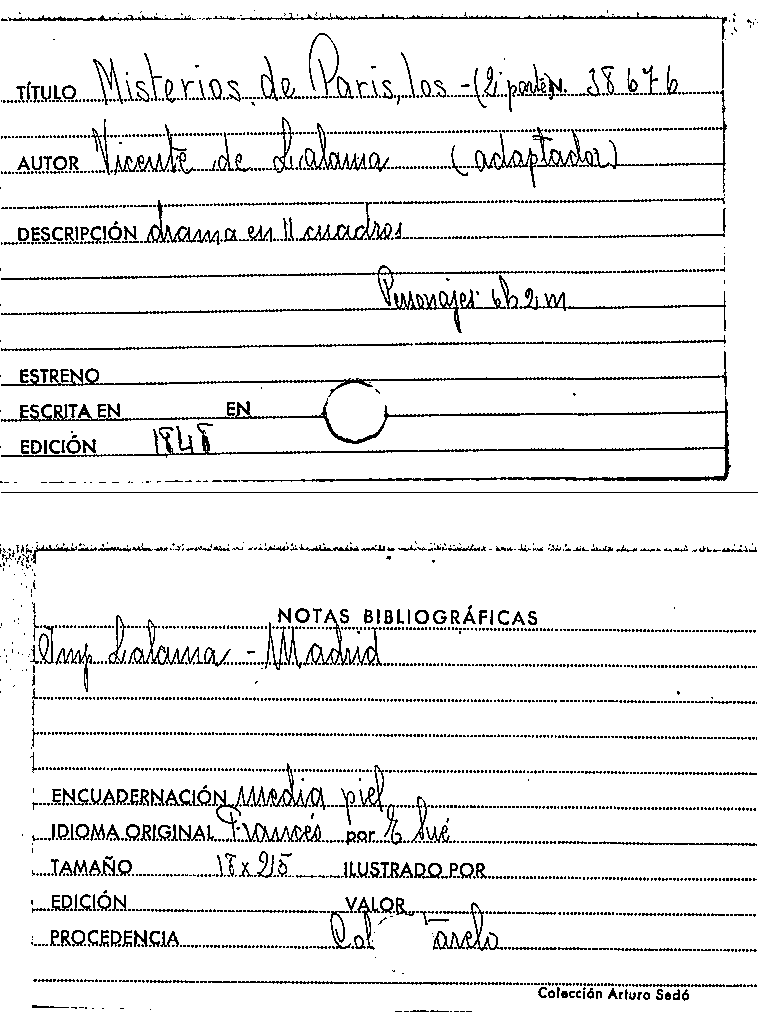 TÍTULO Misterios de Paris, los - (2ª parte) N. 38676
AUTOR Vicente de Lalama (adaptador)
DESCRIPCIÓN drama en 11 cuadros
Personajes 6h 2m
ESTRENO
ESCRITA EN EN
EDICIÓN 1848
NOTAS BIBLIOGRÁFICAS
Imp Lalama - Madrid
ENCUADERNACIÓN media piel
IDIOMA ORIGINAL Francés por E Sué
TAMAÑO 18 x 215 ILUSTRADO POR
EDICIÓN VALOR
PROCEDENCIA Col
Colección Arturo Sedó